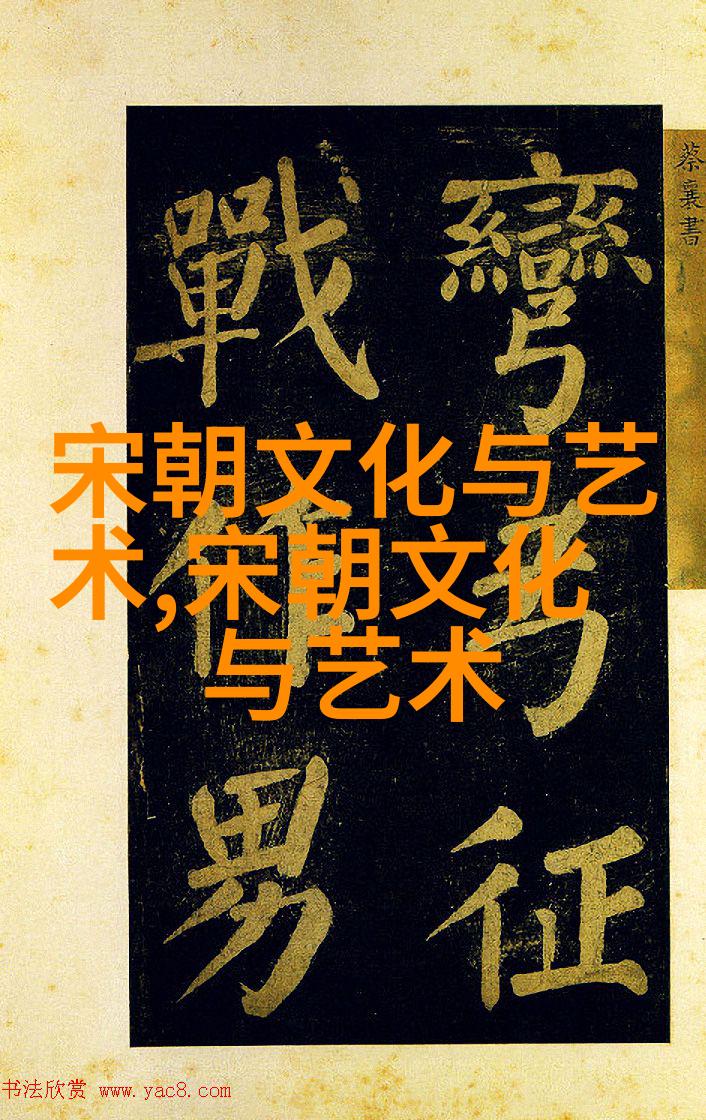 蔡襄書
彎弓征
戰作男
宋朝文化与艺
术,宋朝文化
与艺术
书法欣赏 www.yac8.com